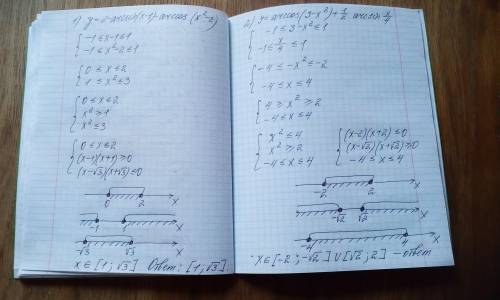 1) y = 2 arcsin(x-1) - arccos(x²-2)
{ -1 ≤ x-1 ≤ 1
{ -1 ≤ x²-2 ≤ 1
{ 0 ≤ x ≤ 2
{ 1 ≤ x² ≤ 3
{ 0 ≤ x ≤ 2
{ x² ≥ 1
{ x² ≤ 3
{ 0 ≤ x ≤ 2
{ (x-1)(x+1) ≥ 0
{ (x-√3)(x+√3) ≤ 0
0 2 x
-1 1 x
-√3 √3 x
x ∈ [1; √3] Ответ: [1; √3]
2) y = arccos(3-x²) + 1/2 arcsin x/4
{ -1 ≤ 3-x² ≤ 1
{ -1 ≤ x/4 ≤ 1
{ -4 ≤ -x² ≤ -2
{ -4 ≤ x ≤ 4
{ 4 ≥ x² ≥ 2
{ -4 ≤ x ≤ 4
{ x² ≤ 4 { (x-2)(x+2) ≤ 0
{ x² ≥ 2 { (x-√2)(x+√2) ≥ 0
{ -4 ≤ x ≤ 4 { -4 ≤ x ≤ 4
-2 2 x
-√2 √2 x
-4 4 x
x ∈ [-2; -√2] U [√2; 2] - ответ